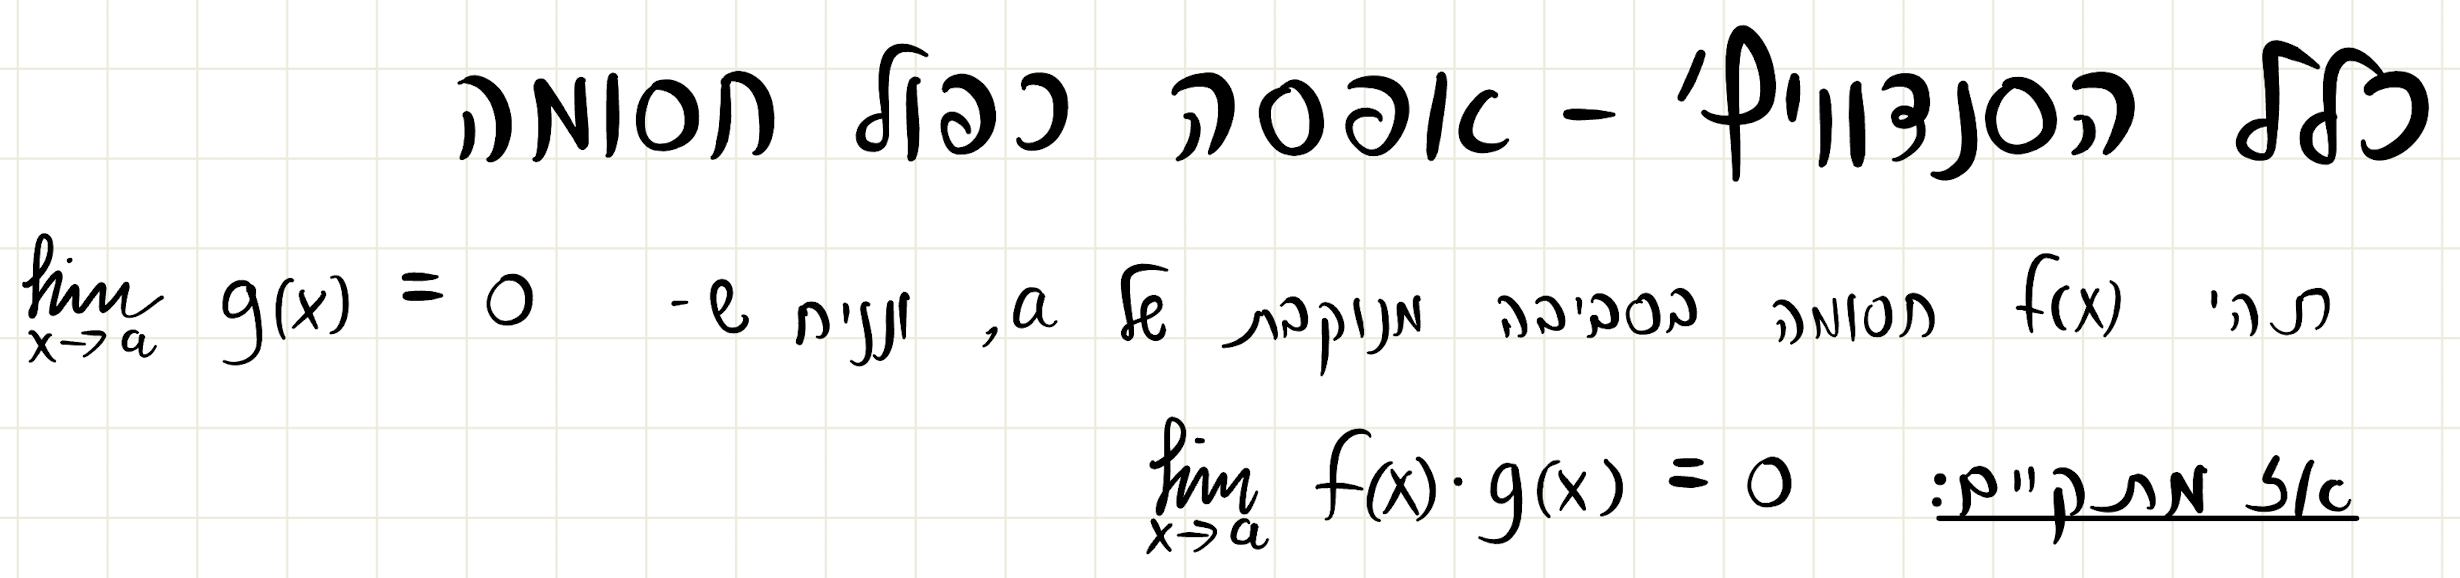 כלל הסנדוויץ' - אפסה כפול חסומה
תהי f(x) חסומה בסביבה מנוקבת של a, ונניח ש- lim x→a g(x) = 0
אז מתקיים: lim x→a f(x)·g(x) = 0